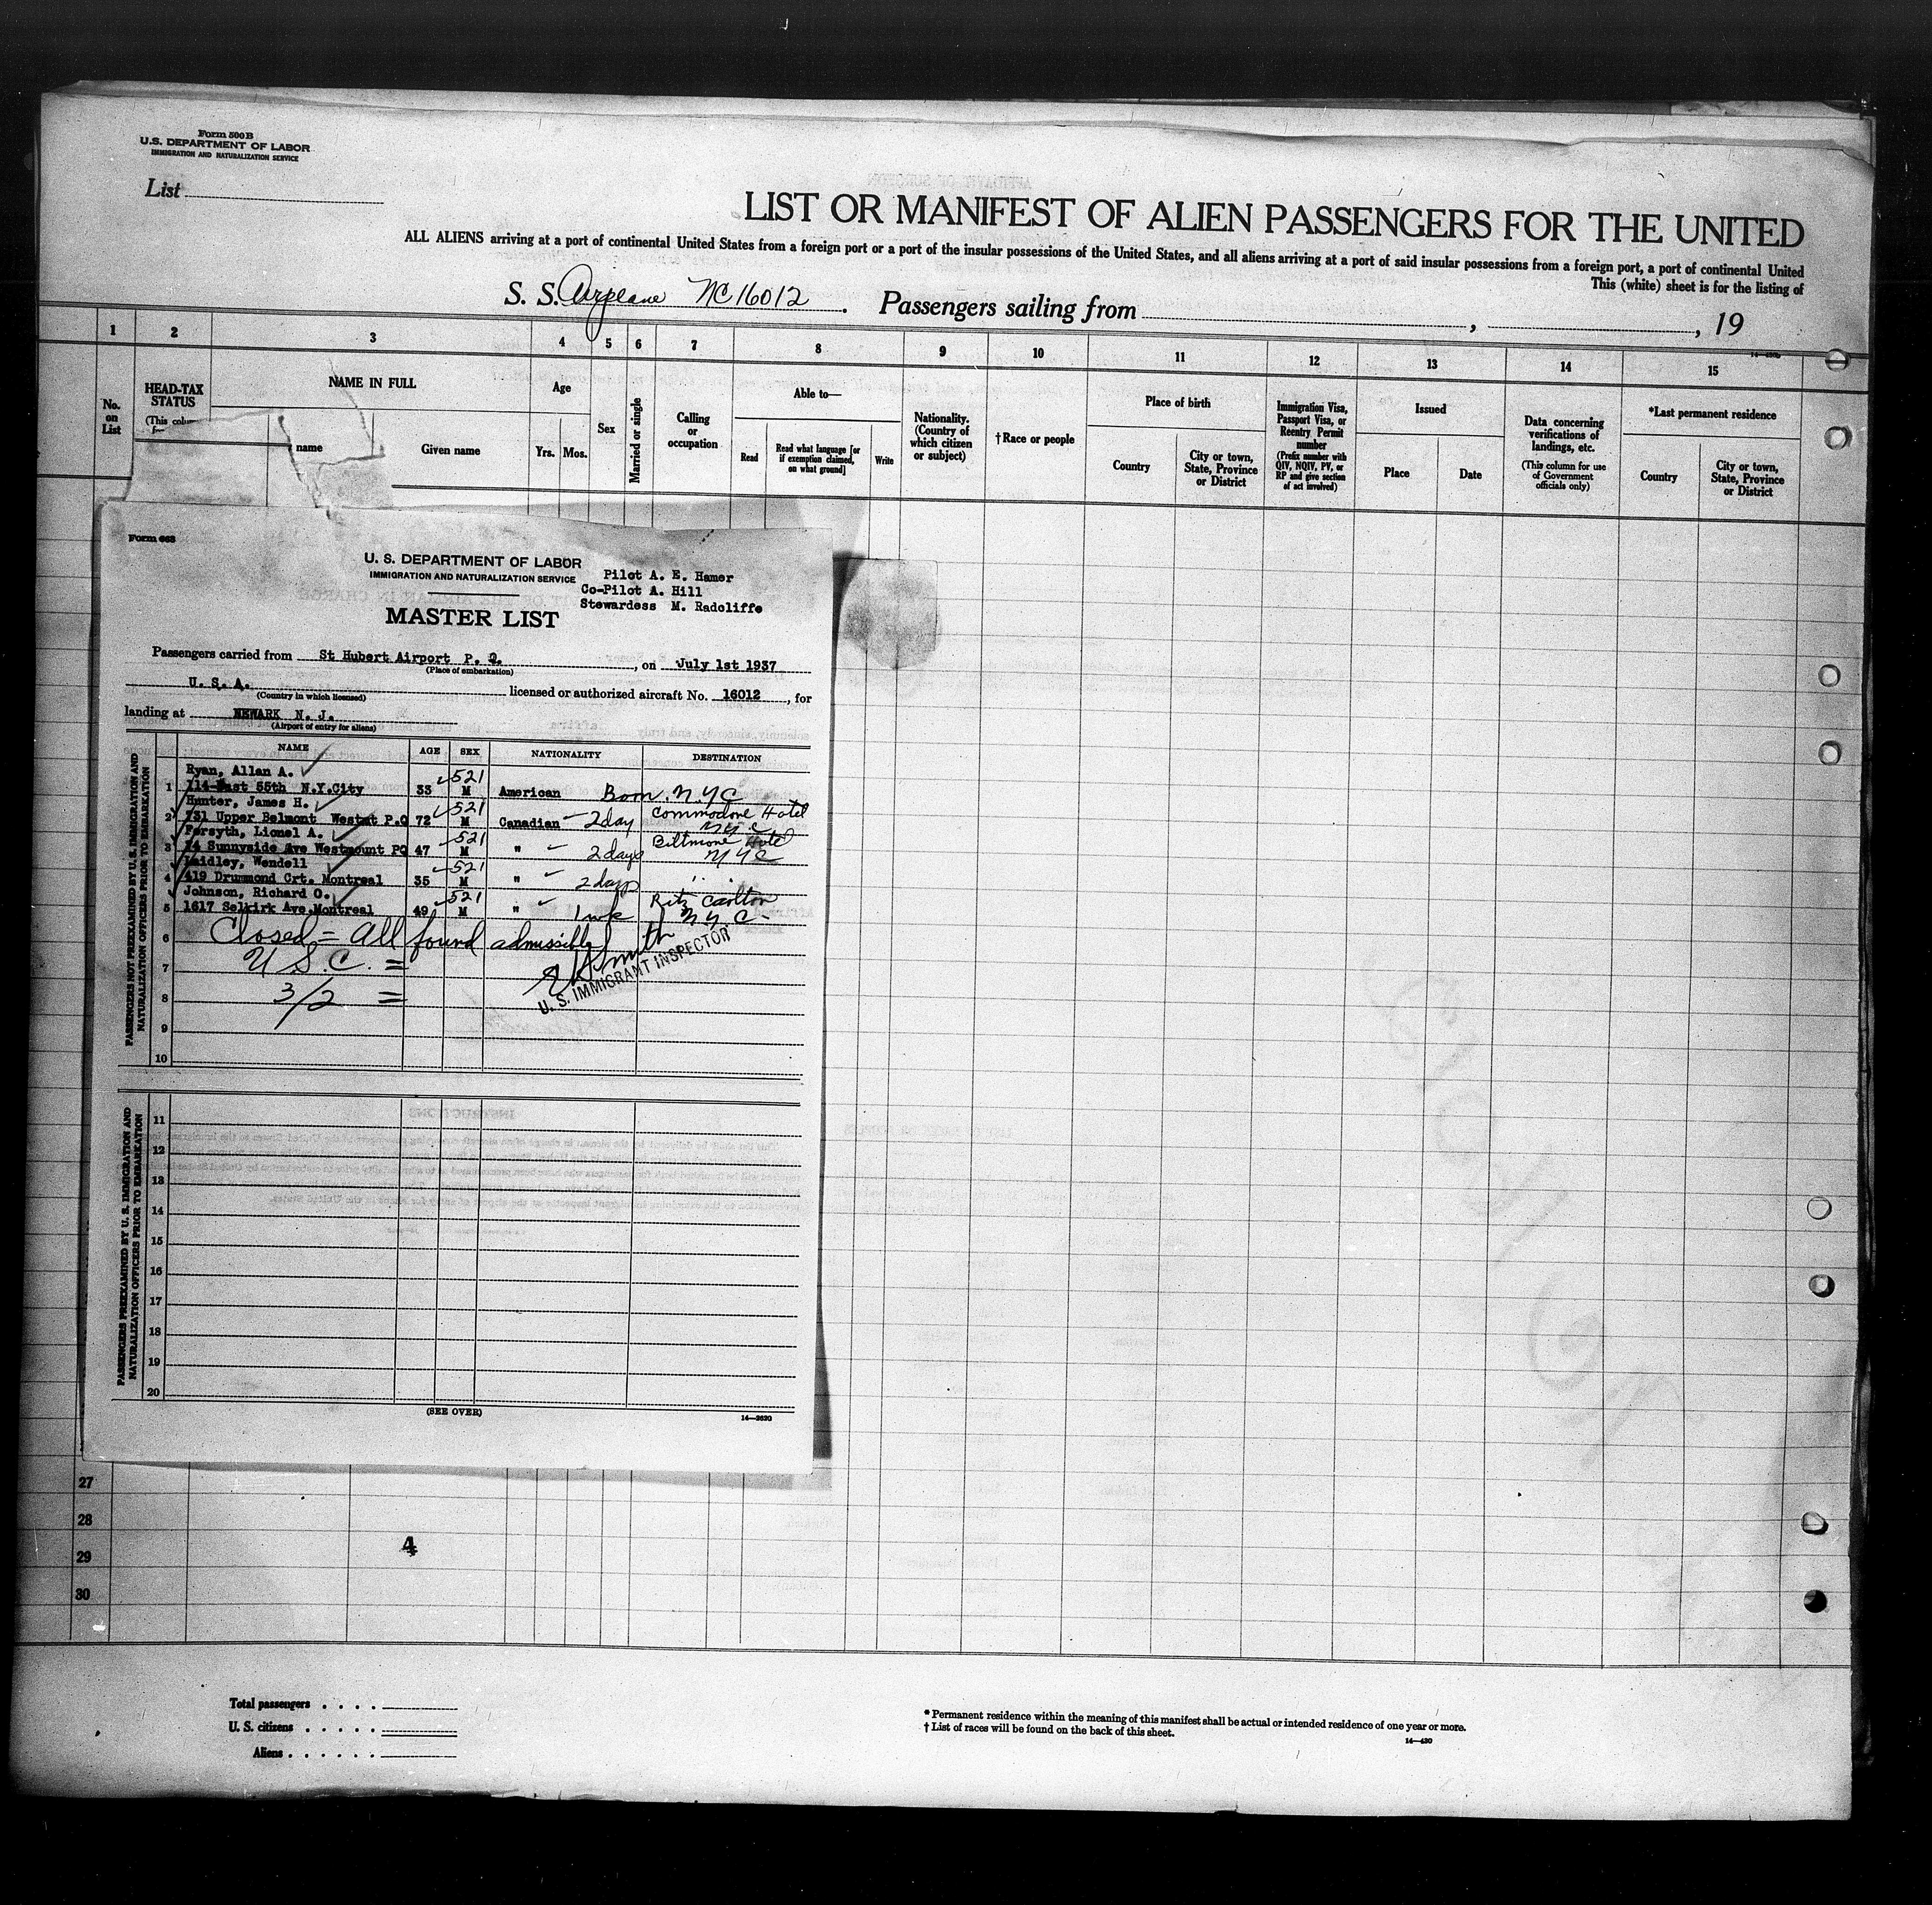 Form 500B
U.S. DEPARTMENT OF LABOR
IMMIGRATION AND NATURALIZATION SERVICE
List
LIST OR MANIFEST OF ALIEN PASSENGERS FOR THE UNITED
ALL ALIENS arriving at a port of continental United States from a foreign port or a port of the insular possessions of the United States, and all aliens arriving at a port of said insular possessions from a foreign port, a port of continental United
This (white) sheet is for the listing of
S. S. Airplane NC16012. Passengers sailing from , , 19
1 2 3 4 5 6 7 8 9 10 11 12 13 14 15
No. on List
HEAD-TAX STATUS
(This colum
NAME IN FULL
name
Given name
Age
Yrs. Mos.
Sex
Married or single
Calling or occupation
Able to—
Read
Read what language [or if exemption claimed, on what ground]
Write
Nationality. (Country of which citizen or subject)
†Race or people
Place of birth
Country
City or town, State, Province or District
Immigration Visa, Passport Visa, or Reentry Permit number
(Prefix number with QIV, NQIV, PV, or RP and give section of act involved)
Issued
Place
Date
Data concerning verifications of landings, etc.
(This column for use of Government officials only)
*Last permanent residence
Country
City or town, State, Province or District
Form 668
U. S. DEPARTMENT OF LABOR
IMMIGRATION AND NATURALIZATION SERVICE
Pilot A. E. Hamer
Co-Pilot A. Hill
Stewardess M. Radcliffe
MASTER LIST
Passengers carried from St Hubert Airport P. Q. , on July 1st 1937
(Place of embarkation)
U. S. A. licensed or authorized aircraft No. 16012 , for
(Country in which licensed)
landing at NEWARK N. J.
(Airport of entry for aliens)
NAME AGE SEX NATIONALITY DESTINATION
PASSENGERS NOT PREEXAMINED BY U. S. IMMIGRATION AND NATURALIZATION OFFICERS PRIOR TO EMBARKATION
Ryan, Allan A. 521
1 114-East 55th N.Y.City 33 M American Born. N.Y.C
Hunter, James H. 521 Commodore Hotel
2 731 Upper Belmont Westmt P.Q 72 M Canadian 2day NYC
Forsyth, Lionel A. 521 Biltmore Hotel
3 14 Sunnyside Ave Westmount PQ 47 M " 2days NYC
Laidley, Wendell 521
4 419 Drummond Crt. Montreal 35 M " 2days " "
Johnson, Richard O. 521 Ritz Carlton
5 1617 Selkirk Ave.Montreal 49 M " 1 wk N.Y.C-
6 Closed = All found admissible
7 U.S.C. =
U. S. IMMIGRANT INSPECTOR
8 3/2 =
9
10
PASSENGERS PREEXAMINED BY U. S. IMMIGRATION AND NATURALIZATION OFFICERS PRIOR TO EMBARKATION
11
12
13
14
15
16
17
18
19
20
(SEE OVER)
14—3620
27
28
4
29
30
Total passengers . . . .
U. S. citizens . . . . .
Aliens . . . . . .
* Permanent residence within the meaning of this manifest shall be actual or intended residence of one year or more.
† List of races will be found on the back of this sheet.
14—430